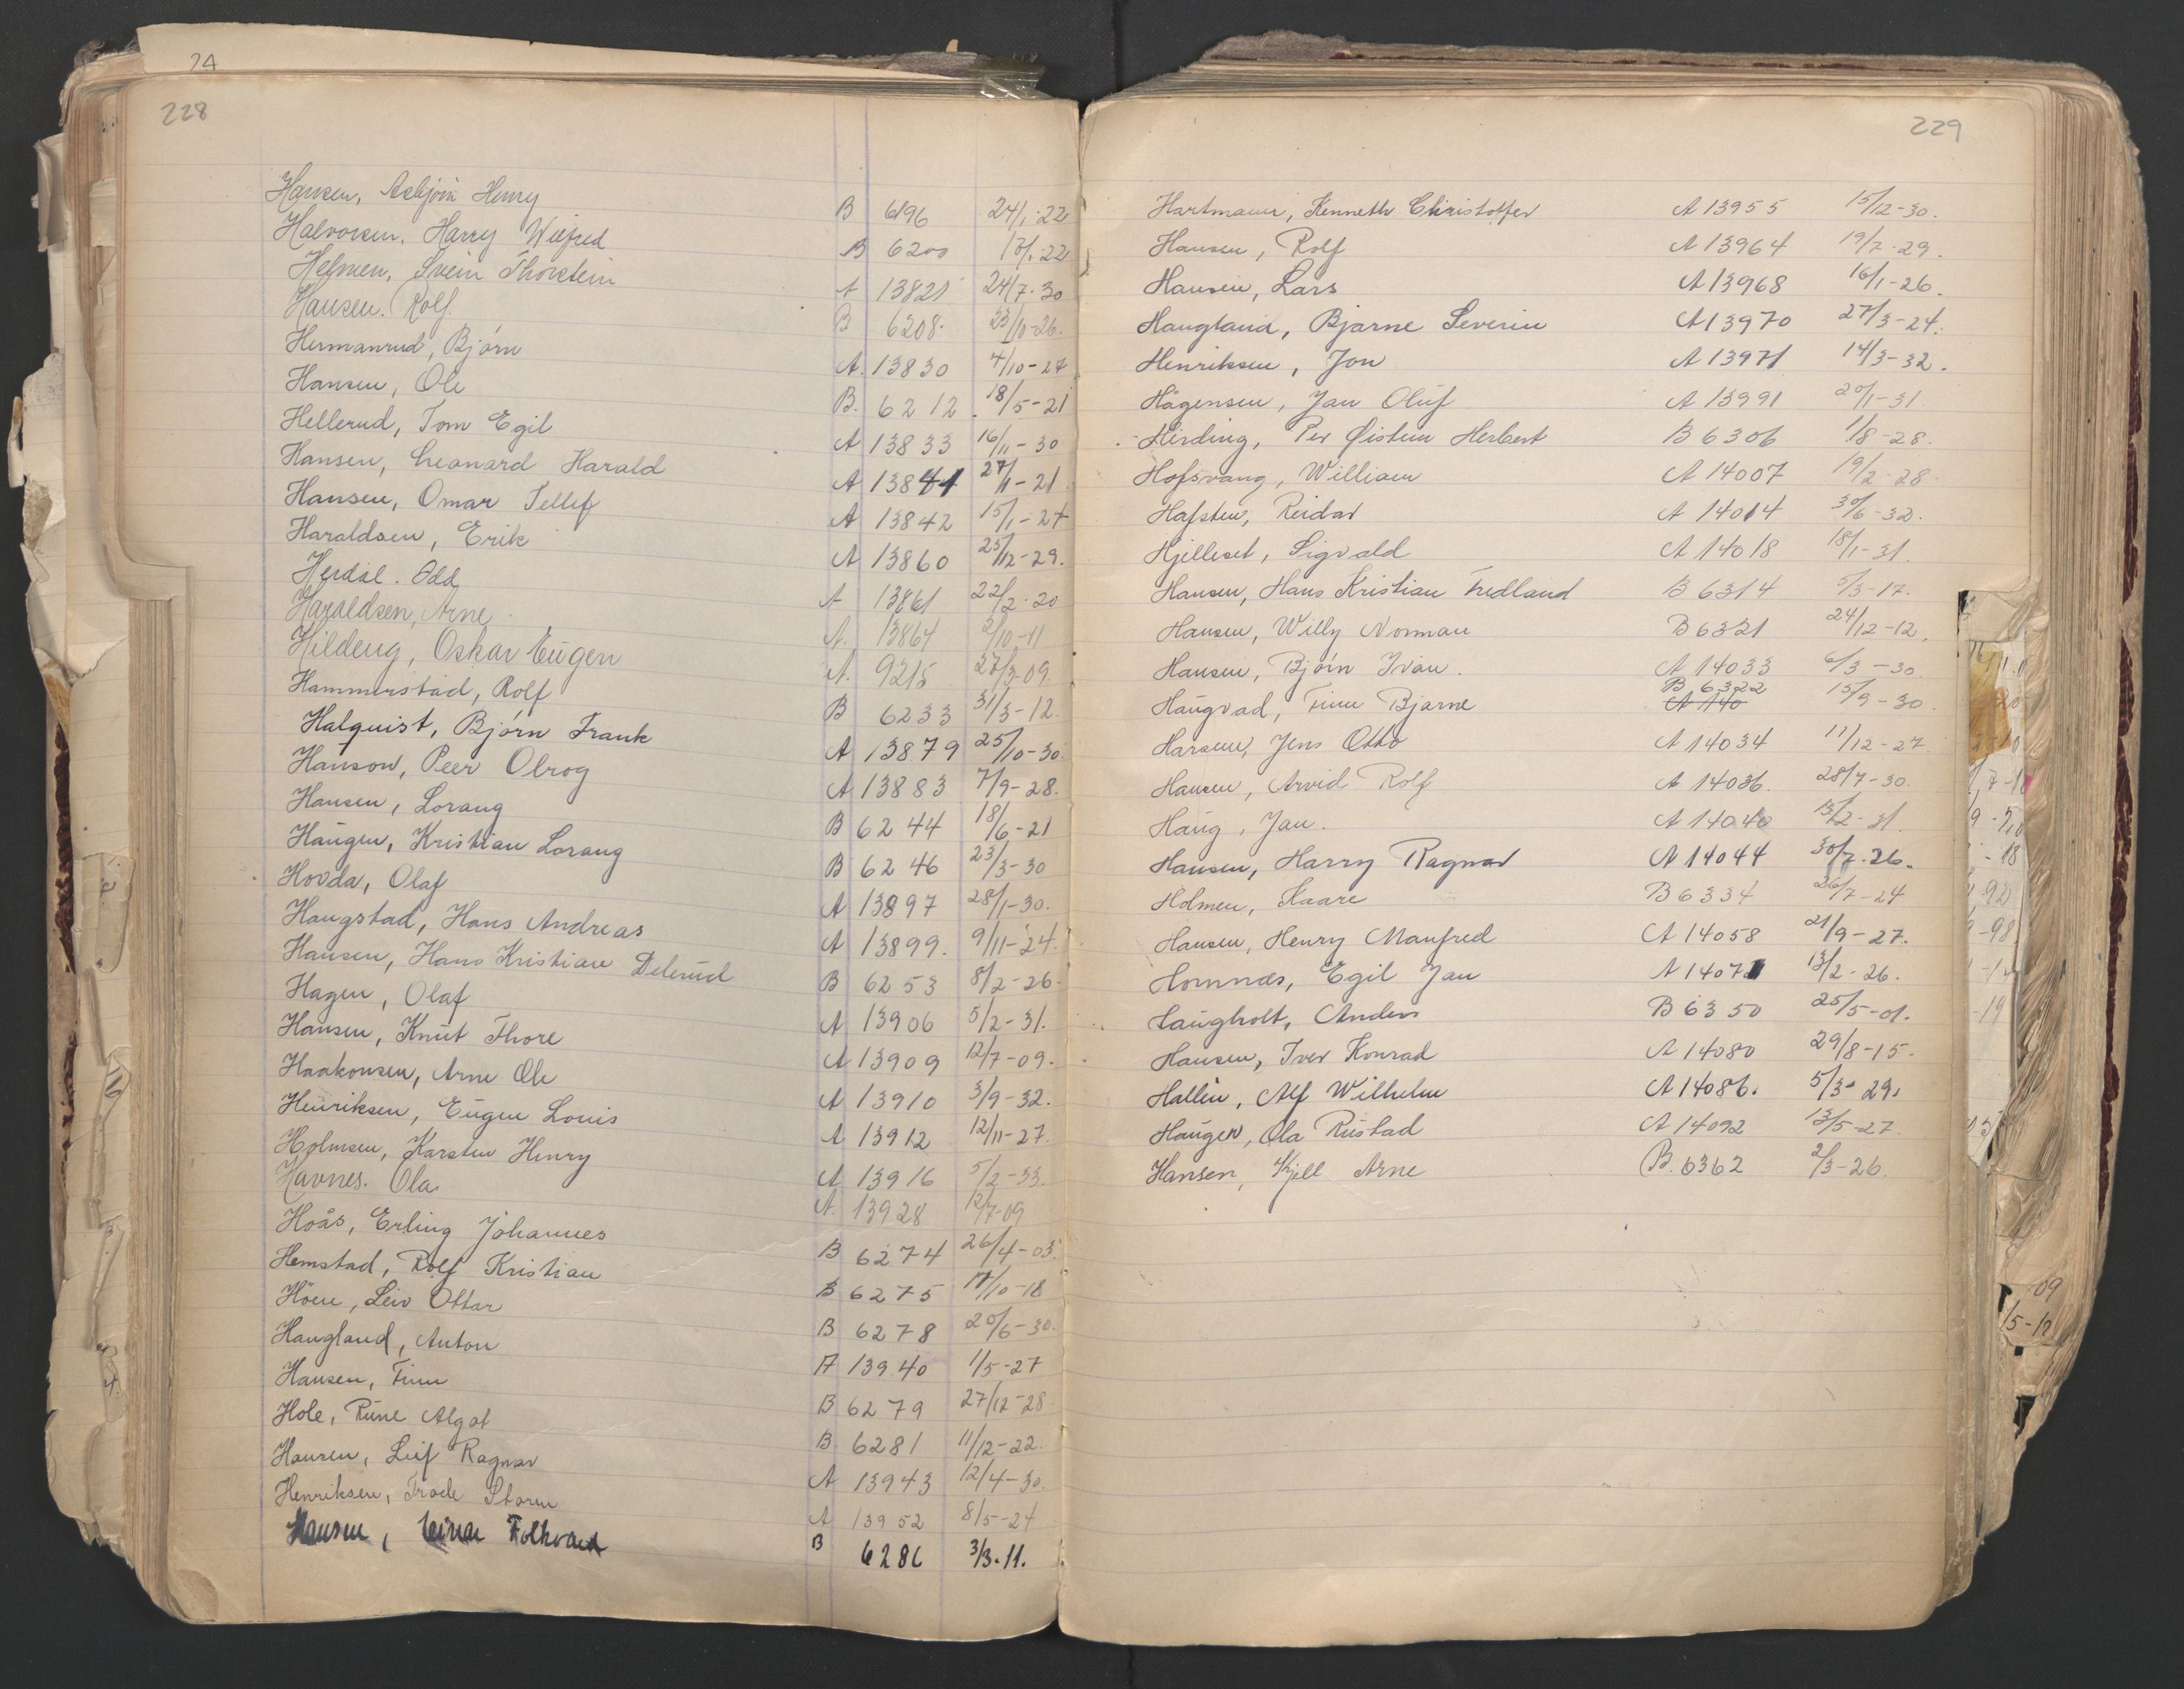 24
228
Hansen, Asbjørn Henry B 6196 24/1-22
Halvorsen, Harry Wilfred B 6200 13/1-22
Helmen, Svein Thorstein A 13821 24/7-30
Hansen. Rolf. B 6208. 23/10-26.
Hermanrud, Bjørn A. 13830 4/10-27
Hansen, Ole B. 6212. 18/5-21
Hellerud, Tom Egil A 13833 16/11-30
Hansen, Leonard Harald A 13841 27/11-21
Hansen, Omar Tellef A 13842 15/1-27
Haraldsen, Erik A 13860 25/12-29.
Herdal. Odd A 13861 22/2-20
Haraldsen, Arne A. 13864 3/10-11
Hildeng, Oskar Eugen A. 9215 27/3-09.
Hammerstad, Rolf B 6233 31/3-12.
Halquist, Bjørn Frank A 13879 25/10-30
Hanson, Peer Olrog A 13883 7/9-28.
Hansen, Lorang B 6244 18/6-21
Haugen, Kristian Lorang B 6246 23/3-30
Hovda, Olaf A 13897 28/1-30.
Haugstad, Hans Andreas A 13899. 9/11-24.
Hansen, Hans Kristian Delerud B 6253 8/2-26-
Hagen, Olaf A 13906 5/2-31.
Hansen, Knut Thore A 13909 12/7-09.
Haakonsen, Arne Ole A 13910 3/9-32.
Henriksen, Eugen Louis A 13912 12/11-27.
Holmsen, Karsten Henry A 13916 5/2-33.
Havnes. Ola A. 13928 12/7-09
Hoås, Erling Johannes B 6274 26/4-03.
Hemstad, Rolf Kristian B 6275 17/10-18
Höen, Leiv Ottar B 6278 20/6-30.
Haugland, Anton A 13940 1/5-27
Hansen, Finn B 6279 27/12-28
Hole, Rune Algot B 6281 11/12-22.
Hansen, Leif Ragnar A 13943 12/4-30.
Henriksen, Frode Storm A 13952 8/5-24
Hansen, Einar Folkvard B 6286 3/3.11.
229
Hartmann, Kenneth Christoffer A 13955 15/12-30.
Hansen, Rolf A 13964 19/7-29.
Hansen, Lars A 13968 16/1-26.
Haugland, Bjarne Severin A 13970 27/3-24.
Henriksen, Jon A 13971 14/3-32.
Hågensen, Jan Oluf A 13991 20/1-31
Hirding, Per Øistein Herbert B 6306 1/8-28.
Hofsvang, William A 14007 19/2-28.
Hafsten, Reidar A 14014 30/6-32.
Hjelleset, Sigvald A 14018 18/1-31.
Hansen, Hans Kristian Fredland B 6314 5/3-17.
Hansen, Willy Norman B 6321 24/12-12.
Hansen, Bjørn Ivan. A 14033 6/3-30
Haugvad, Finn Bjarne B 6322 15/9-30.
A 140
Hansen, Jens Otto A 14034 11/12-27
Hansen, Arvid Rolf A 14036. 28/7-30.
Haug, Jan. A 14040 13/2-31.
Hansen, Harry Ragnar A 14044 30/7-26.
Holmen, Kaare B 6334 26/7-24
Hansen, Henry Manfred A 14058 21/9-27.
Homnæs, Egil Jan A 14071 13/2-26.
Haugholt, Anders B 6350 25/5-01.
Hansen, Iver Konrad A 14080 29/8-15.
Hallin, Alf Wilhelm A 14086. 5/3-29.
Haugen, Ola Rustad A 14092 13/5-27.
Hansen, Kjell Arne B. 6362 2/3-26.